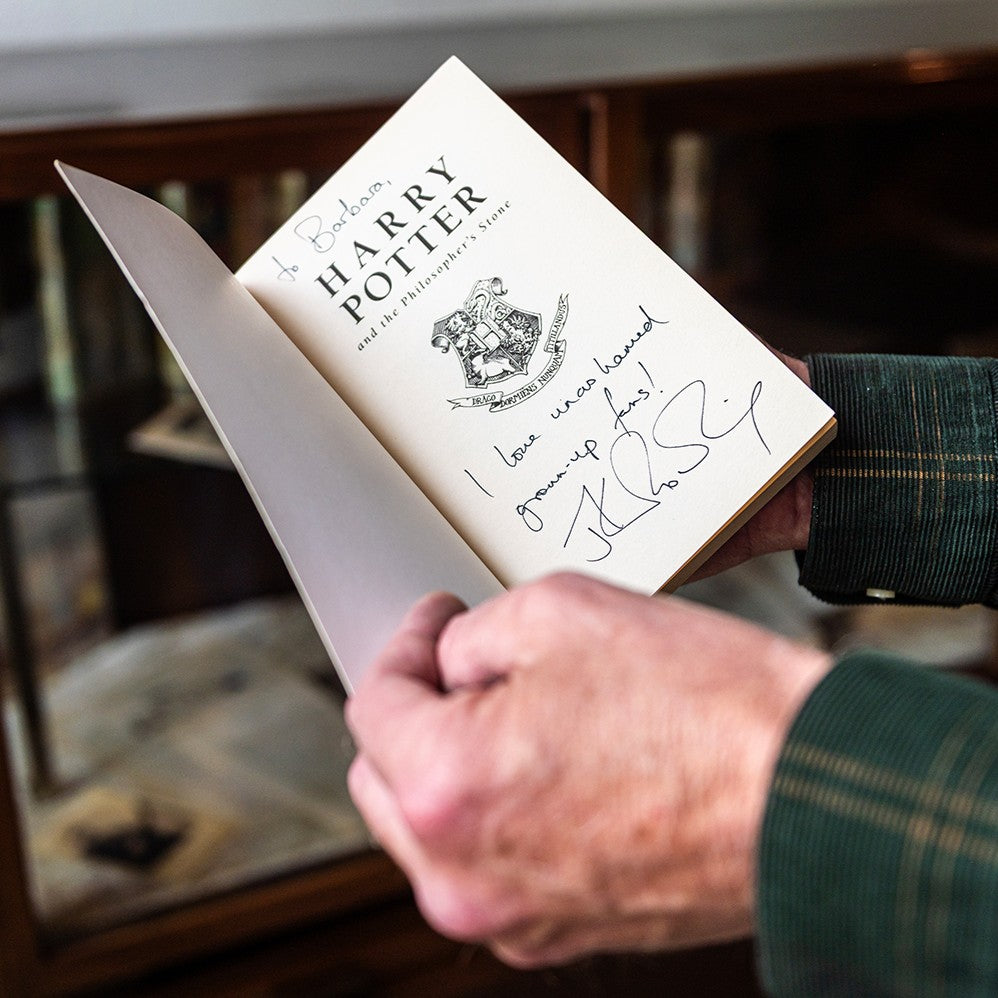 to Barbara,
HARRY
POTTER
and the Philosopher's Stone
DRACO DORMIENS NUNQUAM TITILLANDUS
I love unashamed
grown-up fans!
JK Rowling